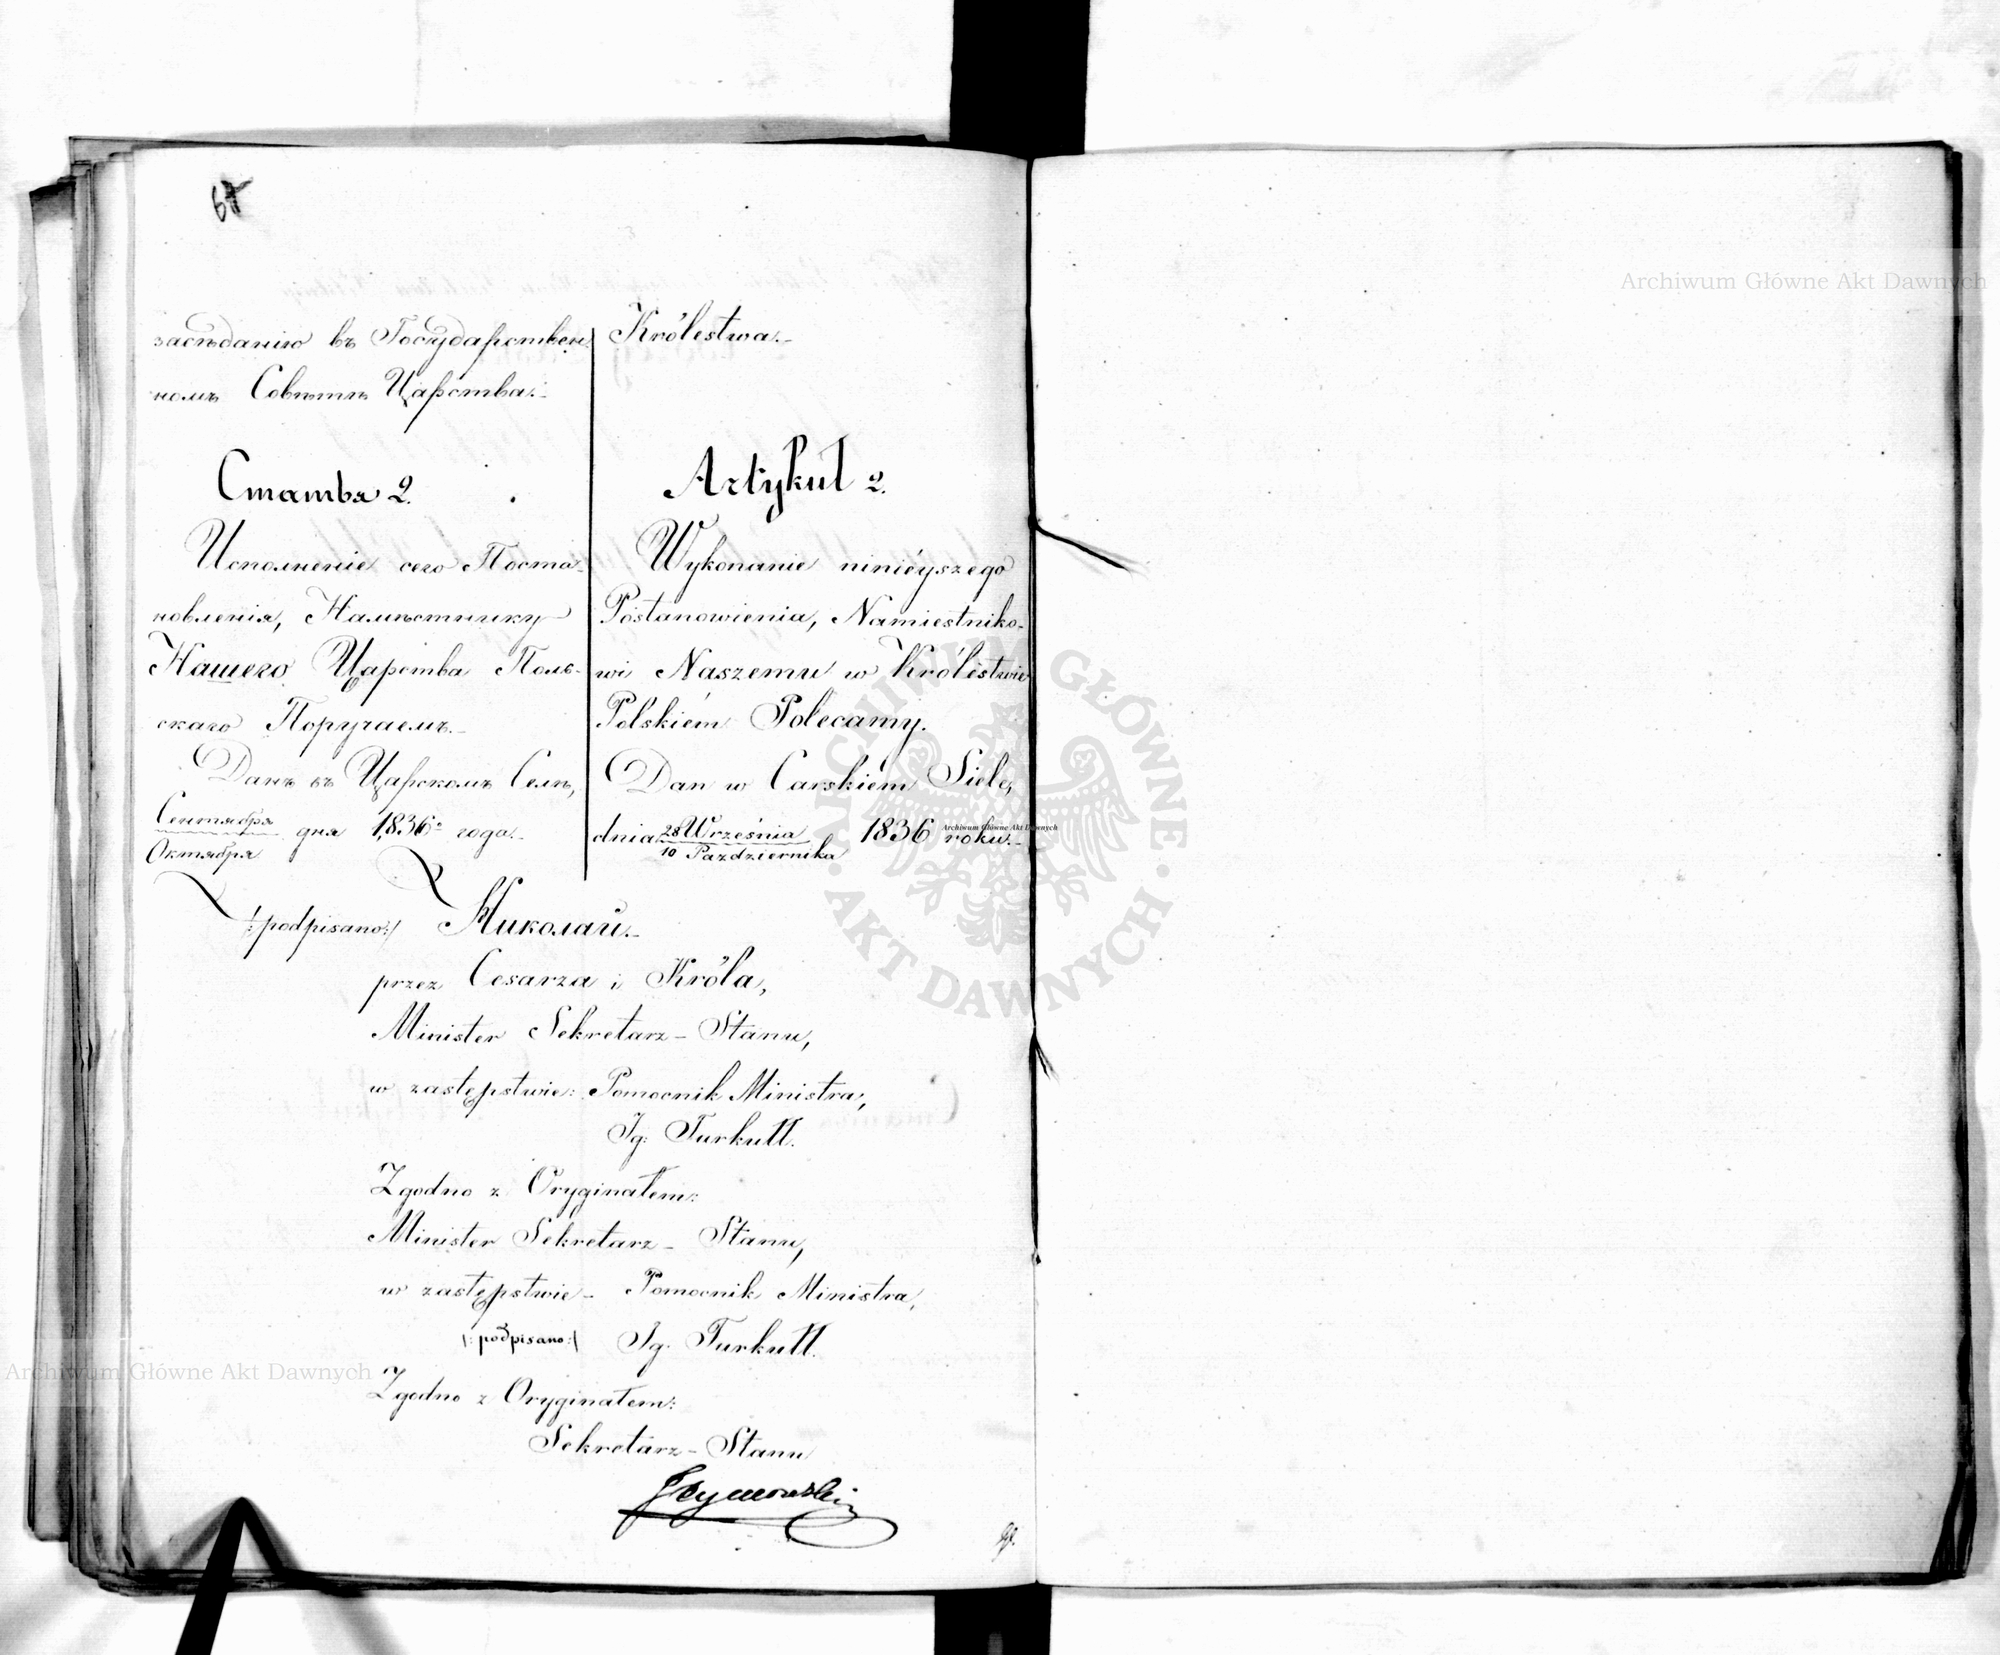 засѣданію въ Государствен
номъ Совѣтѣ Царства.
Статья 2.
Исполненіе сего Поста-
новленія, Намѣстнику
Нашего Царства Поль-
скаго Поручаемъ.
Данъ въ Царскомъ Селѣ,
Сентября
Октября
дня 1836 года.
Królestwa.
Artykuł 2.
Wykonanie niniéyszego
Postanowienia, Namiestniko-
wi Naszemu w Królestwie
Polskiém Polecamy.
Dan w Carskiém Siele,
dnia 28 Września
10 Października
1836 roku.
/:podpisano:/ Николай.
przez Cesarza i Króla,
Minister Sekretarz - Stanu,
w zastępstwie: Pomocnik Ministra,
Ig: Turkułł.
Zgodno z Oryginałem:
Minister Sekretarz - Stanu,
w zastępstwie - Pomocnik Ministra,
/:podpisano:/ Ig. Turkułł.
Zgodno z Oryginałem:
Sekretarz - Stanu
Archiwum Główne Akt Dawnych
Archiwum Główne Akt Dawnych
Archiwum Główne Akt Dawnych
ARCHIWUM GŁÓWNE
AKT DAWNYCH